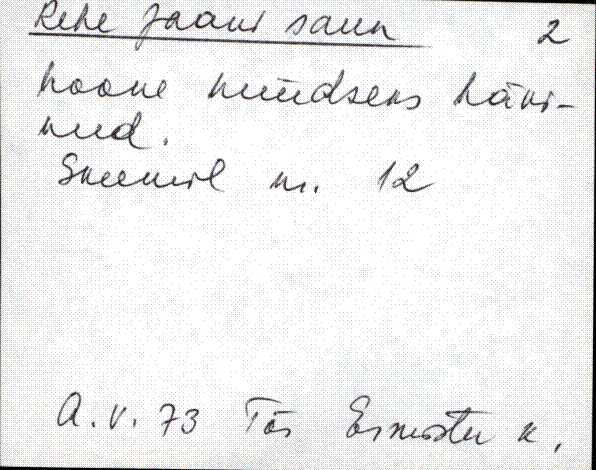 Rehe Jaani saun 2
hoone nüüdseks hävi-
nud.
Skeemil nr. 12
A.V. 73 Tõs Ermistu k.